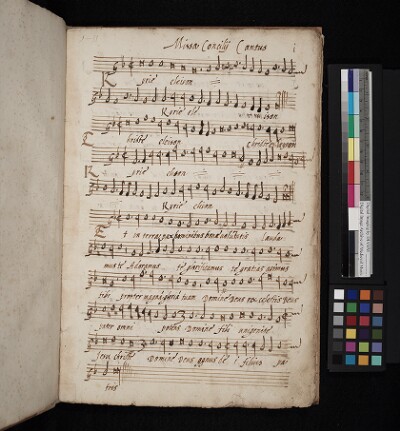 Missa Concilij Cantus
Kyrie eleison
Kyrie ele
ison
Christe eleison Christe eleison
Kyrie eleison
Kyrie eleison
Et in terra pax hominibus bonæ voluntatis Lauda
mus te Adoramus te glorificamus te gratias agimus
tibi propter magnā gloriā tuam Domine Deus rex cęlestis Deus
pater omni potens Domine fili unigenite
Jesu christe Domine Deus agnus de i filius pa
tris